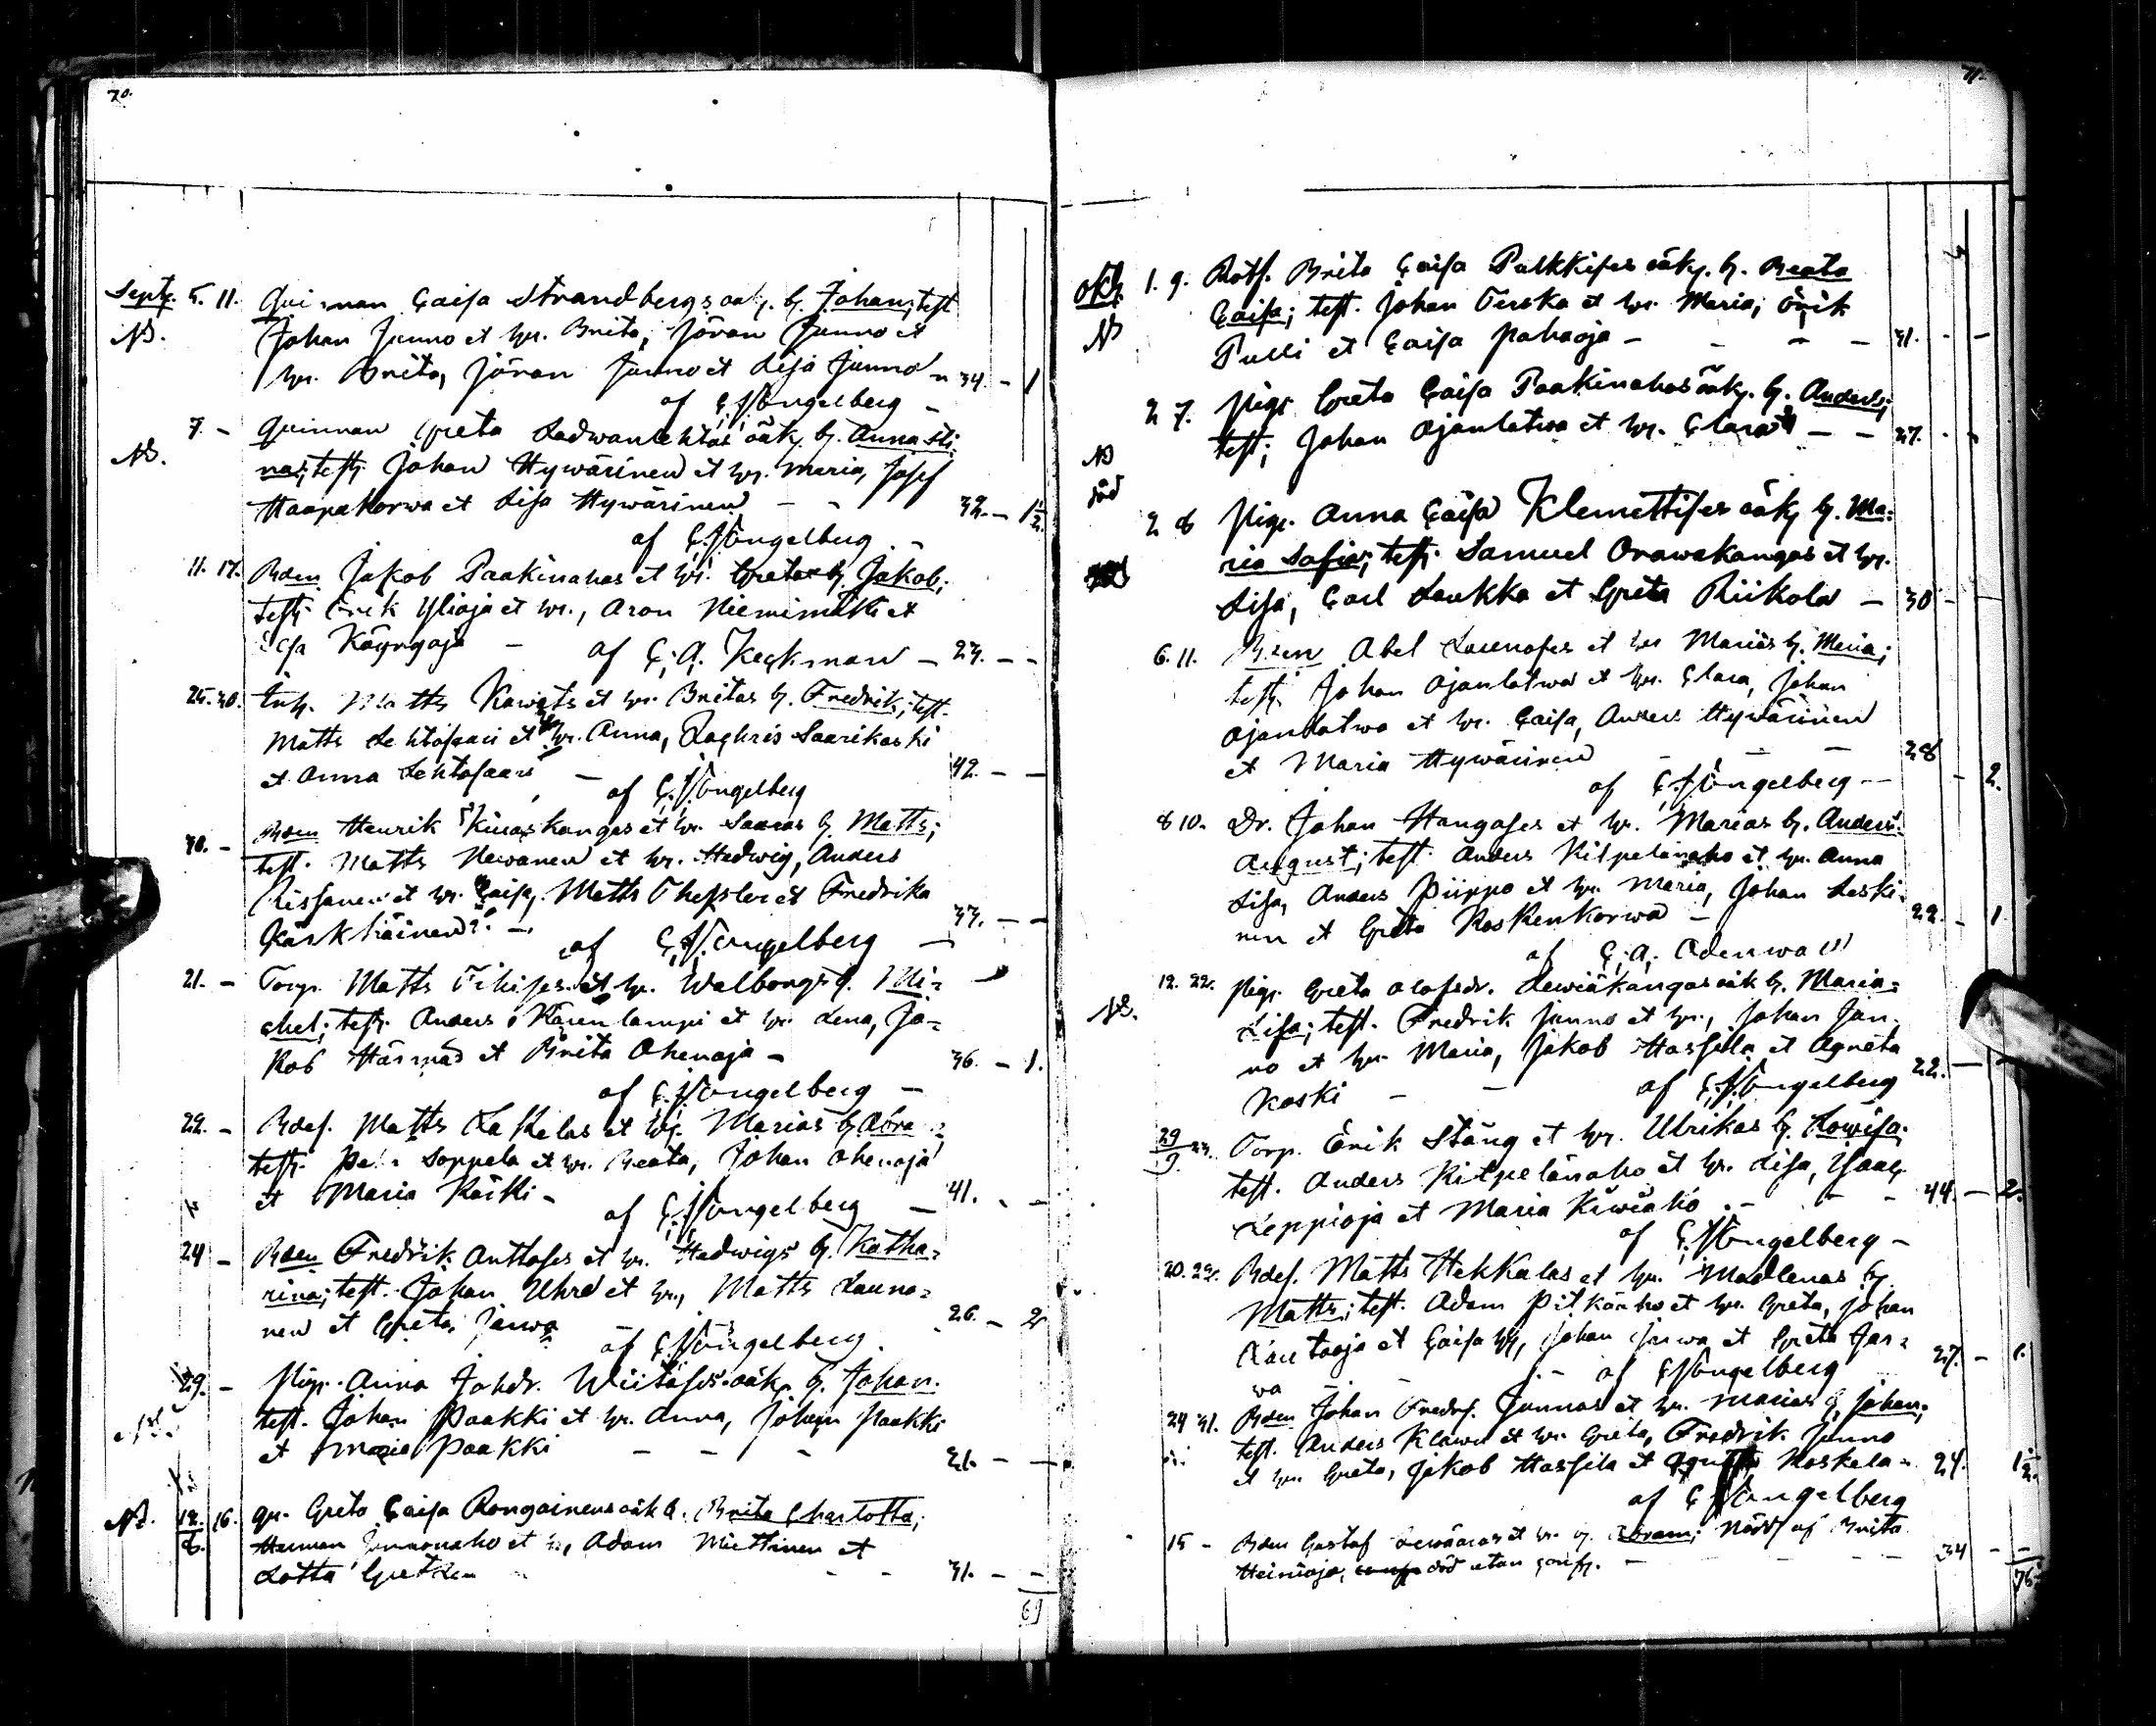 70.
Septr. 5. 11. Qvinnan Caisa Strandbergs oäk. b. Johan; test.
NB. Johan Junno et hr. Brita, Jöran Junno et
hr. Brita, Jöran Junno et Lisa Junno - 34. - 1
af C. J. Engelberg -
7. - Qvinnan Greta Ladwanlehtos oäk b. Anna Sti-
NB. na; test. Johan Hywärinen et hr. Maria, Josef
Haapakorwa et Lisa Hywärinen - - 32. - 1½.
af C. J. Engelberg -
11. 17. Bden Jakob Paakinahos et hr. Gretas b. Jakob;
test. Erik Ylioja et hr., Aron Niemimäki et
Lisa Käyrgoja - af C. A. Keckman - 23. - -
25. 30. Inh. Matts Kawats et hr. Britas b. Fredrik; test.
Matts Lehtosaari et hr. Anna, Zachris Saarikoski
et Anna Lehtosaari - af C. J. Engelberg 42. - -
30. - Bden Henrik Kiuaskangas et hr. Saaras b. Matts;
test. Matts Newanen et hr. Hedwig, Anders
Rissanen et hr. Caisa, Matts Thessler et Fredrika
Karkhäinen - 33. - -
af C. J. Engelberg -
21. - Torp. Matts Tihises et hr. Walborgs b. Mi-
chel; test. Anders Kärenlampi et hr. Lena, Ja-
kob Härmä et Brita Ohenoja - 36. - 1.
af C. J. Engelberg -
22. - Bdes. Matts Lakelas et hr. Marias b. Abra
test. Petr Soppela et hr. Beata, Johan Ohenoja
et Maria Kärki - af C. J. Engelberg - 41. - -
24 - Bden Fredrik Anttoses et hr. Hedwigs b. Katha-
rina; test. Johan Uhre et hr., Matts Launo-
nen et Greta Jarwa - af C. J. Engelberg. 26. - 2
29. - Pig. Anna Johdr. Wiitases oäk. b. Johan.
Nb. test. Johan Paakki et hr. Anna, Johan Paakki
et Maria Paakki - - - 31. - -
NB. 12/8. 16. Qv. Greta Caisa Rongainens oäk b. Brita Charlotta;
Herman Junnonaho et hr, Adam Miettinen et
Lotta - - 31. - -
69
71.
Oktb. 1. 9. Rotf. Brita Caisa Pulkkises oäk. b. Beata
NB Caisa; test. Johan Terska et hr. Maria, Erik
Pulli et Caisa Pahaoja - - - - 31. - -
2 7. Pigs Greta Caisa Paakinahos oäk. b. Anders;
NB test; Johan Ojanlatwa et hr. Clara - - 27. - -
död
2 8 Pigs. Anna Caisa Klemettises oäk b. Ma-
ria Sofia; test. Samuel Orawakangas et hr.
Lisa, Carl Laukka et Greta Riikola - 30 -
6. 11. Bden Abel Launoses et hr Marias b. Maria;
test. Johan Ojanlatwa et hr. Clara, Johan
Ojanlatwa et hr. Caisa, Anders Hywärinen
et Maria Hywärinen - - - 28
af C. J. Engelberg - - 2.
8 10. Dr. Johan Hangases et hr. Marias b. Anders
August; test. Anders Kilpelänaho et hr. Anna
Lisa, Anders Piippo et hr. Maria, Johan Leski-
nen et Greta Koskenkorwa - 22. - 1
af C. A. Odenwall
12. 22. Pigs. Greta Olofsdr. Lewiäkangas oäk b. Maria-
NB. Lisa; test. Fredrik Junno et hr., Johan Jun-
no et hr. Maria, Jakob Hassila et Agneta
Koski - - af C. J. Engelberg 22. -
29/9. 23. Torp. Erik Stång et hr. Ulrikas b. Lowisa;
test. Anders Kilpelänaho et hr. Lisa, Isaac
Leppioja et Maria Kiwiaho - - - 44. - 2.
af C. J. Engelberg -
20. 24. Bdes. Matts Hekkalas et hr. Madlenas b.
Matts; test. Adam Pitkänho et hr. Greta, Johan
Lautaoja et Caisa, Johan Jarwa et Greta Jar-
wa - - af C. J. Engelberg 27. - 1.
24 31. Bden Johan Fredrs. Junnos et hr. Marias b. Johan;
test. Anders Klawer et hr. Greta, Fredrik Junno
et hr. Greta, Jakob Hassila et Koskela - 24. 1½.
af C. J. Engelberg
15 - Bden Gustaf et hr. b. Abram; Nöd. af Brita
Heinioja, död utan conf. - - - 34 - -
76.